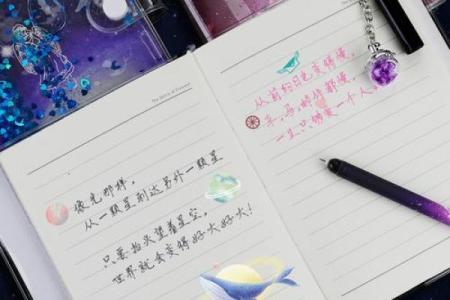 像光那样,
从一颗星到达另外一颗星
只要抬头望着星空,
世界就会变得好大好大!
从前的日色变得慢,
车,马,邮件都慢,
一生只够爱一个人